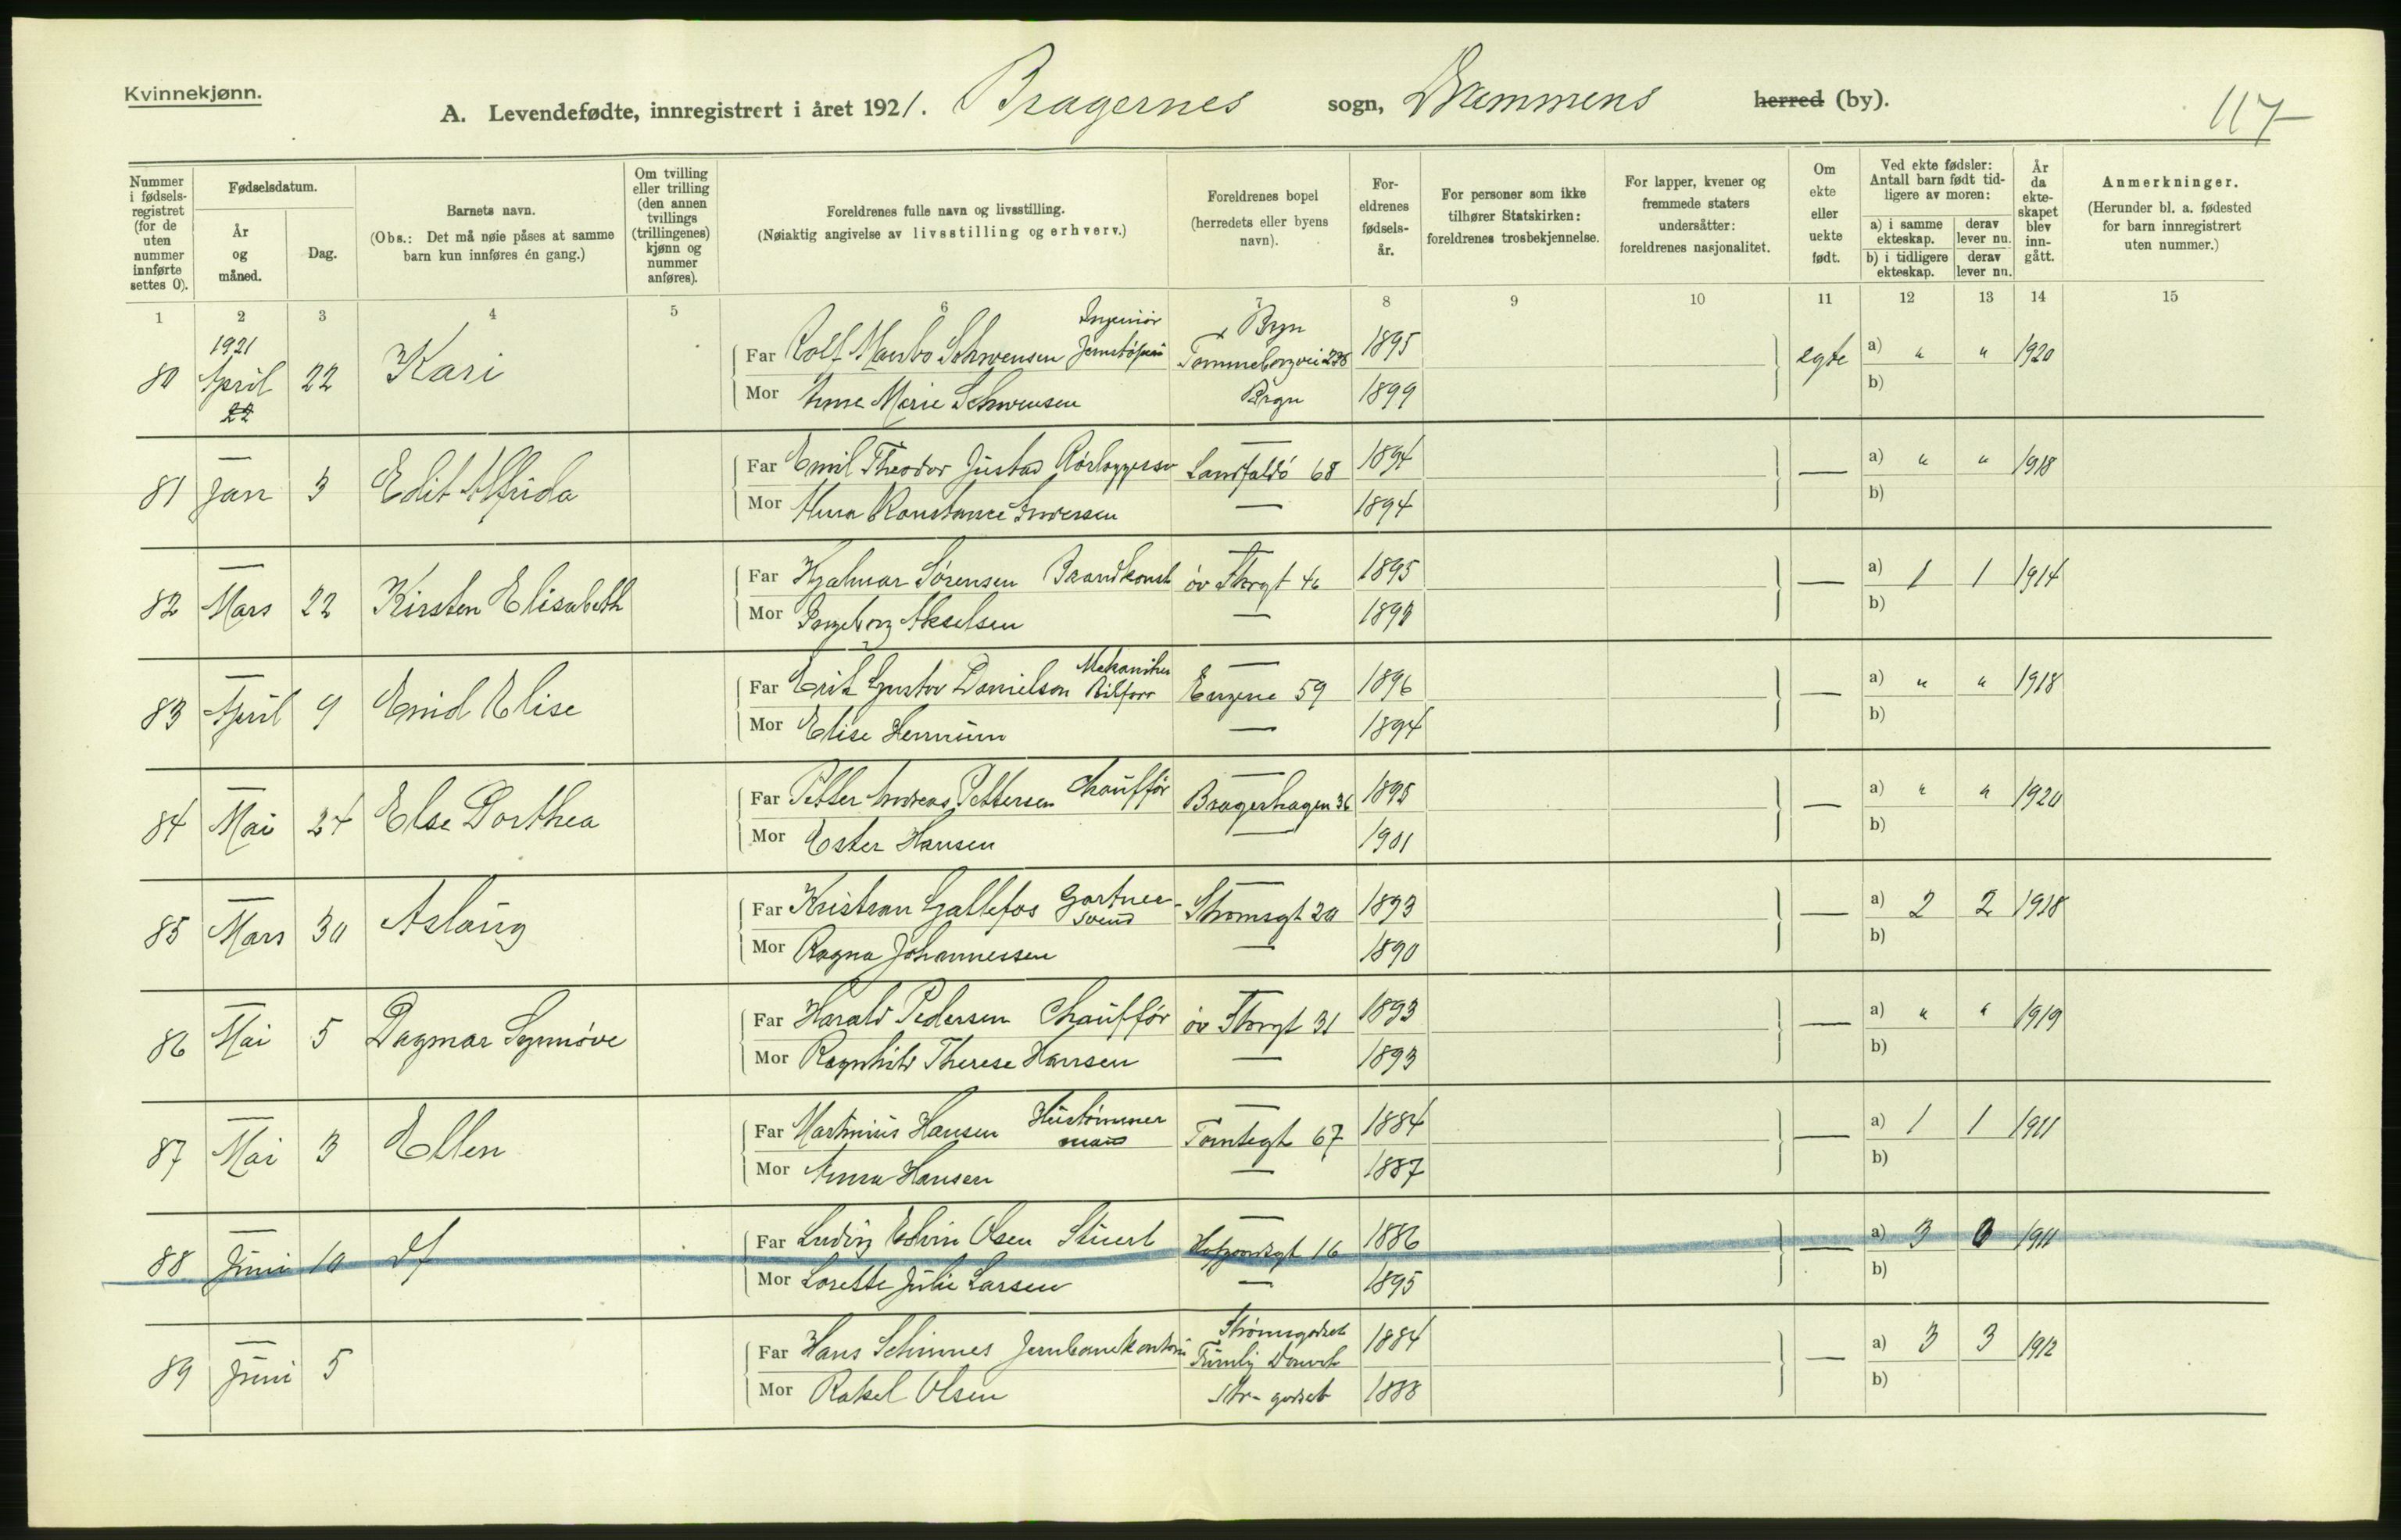 Kvinnekjønn.
A. Levendefødte, innregistrert i året 1921. Bragernes sogn, Drammens herred (by).
117
Nummer i fødsels-registret (for de uten nummer innførte settes 0).
Fødselsdatum.
År og måned.
Dag.
Barnets navn.
(Obs.: Det må nøie påses at samme barn kun innføres én gang.)
Om tvilling eller trilling (den annen tvillings (trillingenes) kjønn og nummer anføres).
Foreldrenes fulle navn og livsstilling.
(Nøiaktig angivelse av livsstilling og erhverv.)
Foreldrenes bopel (herredets eller byens navn).
For-eldrenes fødsels-år.
For personer som ikke tilhører Statskirken: foreldrenes trosbekjennelse.
For lapper, kvener og fremmede staters undersåtter: foreldrenes nasjonalitet.
Om ekte eller uekte født.
Ved ekte fødsler: Antall barn født tid-ligere av moren:
a) i samme ekteskap.
derav lever nu.
b) i tidligere ekteskap.
derav lever nu.
År da ekte-skapet blev inn-gått.
Anmerkninger.
(Herunder bl. a. fødested for barn innregistrert uten nummer.)
1 2 3 4 5 6 7 8 9 10 11 12 13 14 15
1921 Ingeniør Byn
80 April 22 Kari Far Rolf Schwensen 1895 egte a) " " 1920
22 Mor Anna Marie Schwensen 1899 b)
81 Jan 3 Edit Alfrida Far Emil Theodor Landfaldö 68 1894 — a) " " 1918
Mor Anna Konstance — 1894 b)
82 Mars 22 Kirsten Elisabeth Far Hjalmar Sørensen öv Storgt 1895 — a) 1 1 1914
Mor Ingeborg Akselsen — b)
83 April 9 Enid Elise Far Erik Gustav Danielson Mekaniker 59 1896 — a) " " 1918
Mor Elise — 1894 b)
84 Mai 24 Else Dorthea Far Petter Andreas Pettersen Chauffør Bragerhagen 36 1895 — a) " " 1920
Mor Ester Hansen — 1901 b)
85 Mars 30 Aslaug Far Kristian Gallefos Gartner-svend Strømsgt 20 1893 — a) 2 2 1918
Mor Ragna Johannessen — 1890 b)
86 Mai 5 Dagmar Synnöve Far Harald Pedersen Chauffør öv Storgt 31 1893 — a) " " 1919
Mor Ragnhild Therese Hansen — 1893 b)
87 Mai 3 Ellen Far Martinius Hansen Hustømmermand Tomtegt 67 1884 — a) 1 1 1911
Mor Anna Hansen — 1887 b)
88 Juni 10 df Far Ludvig Edvin Olsen Stuert 16 1886 — a) 3 0 1911
Mor Lorette Julie Larsen — 1895 b)
Strømsgodset
89 Juni 5 Far Hans Schinnes 1884 — a) 3 3 1912
Mor Rakel Olsen Str-godset 1888 b)